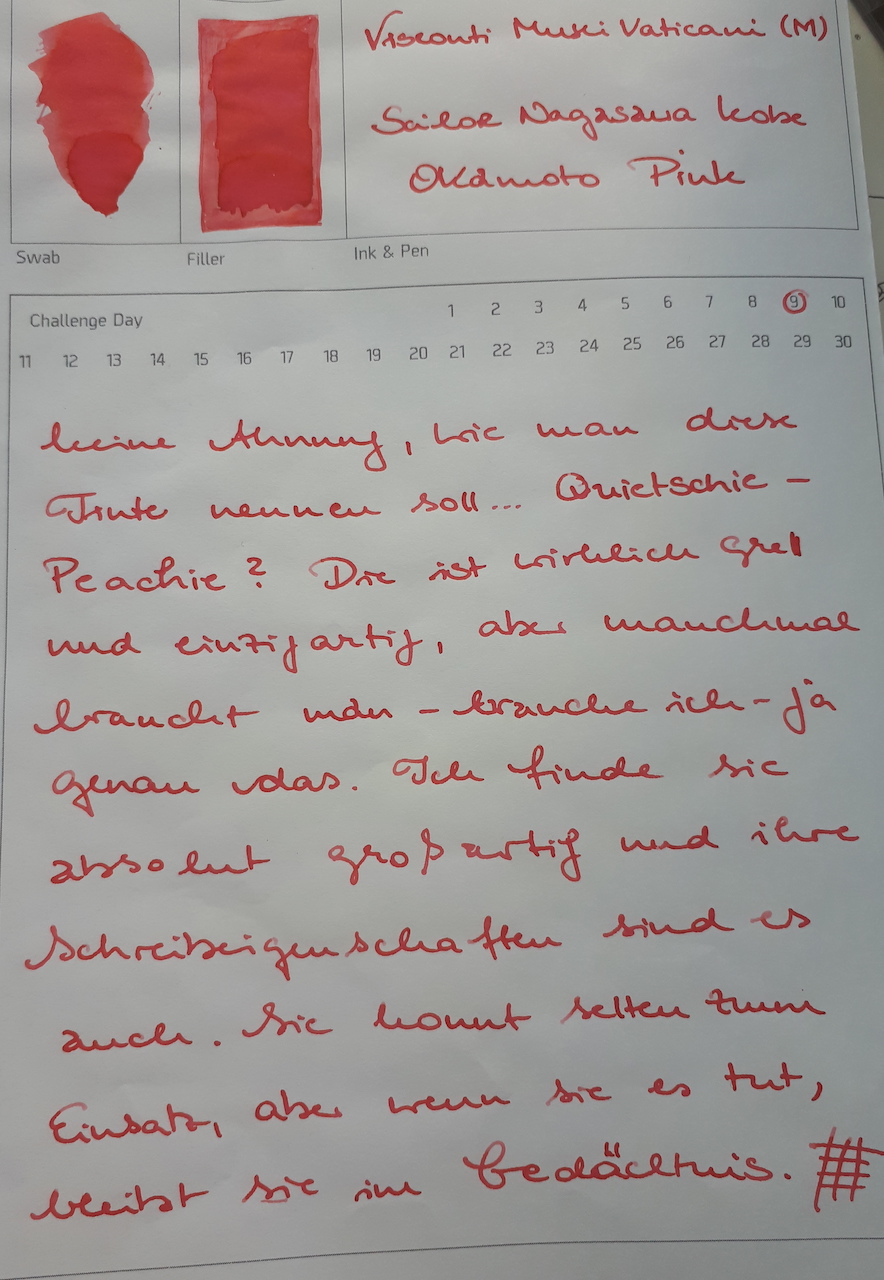 Visconti Musei Vaticani (M)
Sailor Nagasawa Kobe
Okamoto Pink
Swab
Filler
Ink & Pen
Challenge Day
1 2 3 4 5 6 7 8 9 10
11 12 13 14 15 16 17 18 19 20 21 22 23 24 25 26 27 28 29 30
keine Ahnung, wie man diese
Tinte nennen soll... Quietschie-
Peachie? Die ist wirklich grell
und einzigartig, aber manchmal
braucht man - brauche ich - ja
genau das. Ich finde sie
absolut großartig und ihre
Schreibeigenschaften sind es
auch. Sie kommt selten zum
Einsatz, aber wenn sie es tut,
bleibt sie im Gedächtnis. #